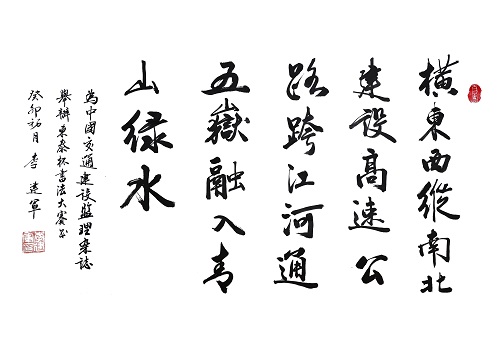 橫東西縱南北
建設高速公
路跨江河通
五嶽融入青
山绿水
為中國交通建设監理杂誌
舉辦東泰杯書法大赛
癸卯月 李建軍